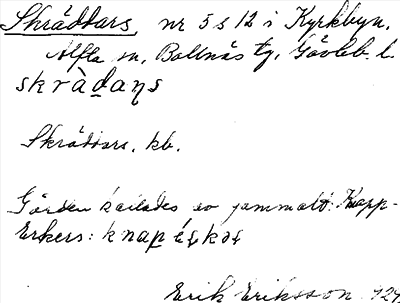 Skräddars, nr 5 s 12 i Kyrkbyn,
Alfta sn, Bollnäs tg, Gävleb. l.
skràdaƞs
Skräddars, kb.
Gården kallades av gammalt: Knapp-
Erkers: knap
Erik Eriksson 1924